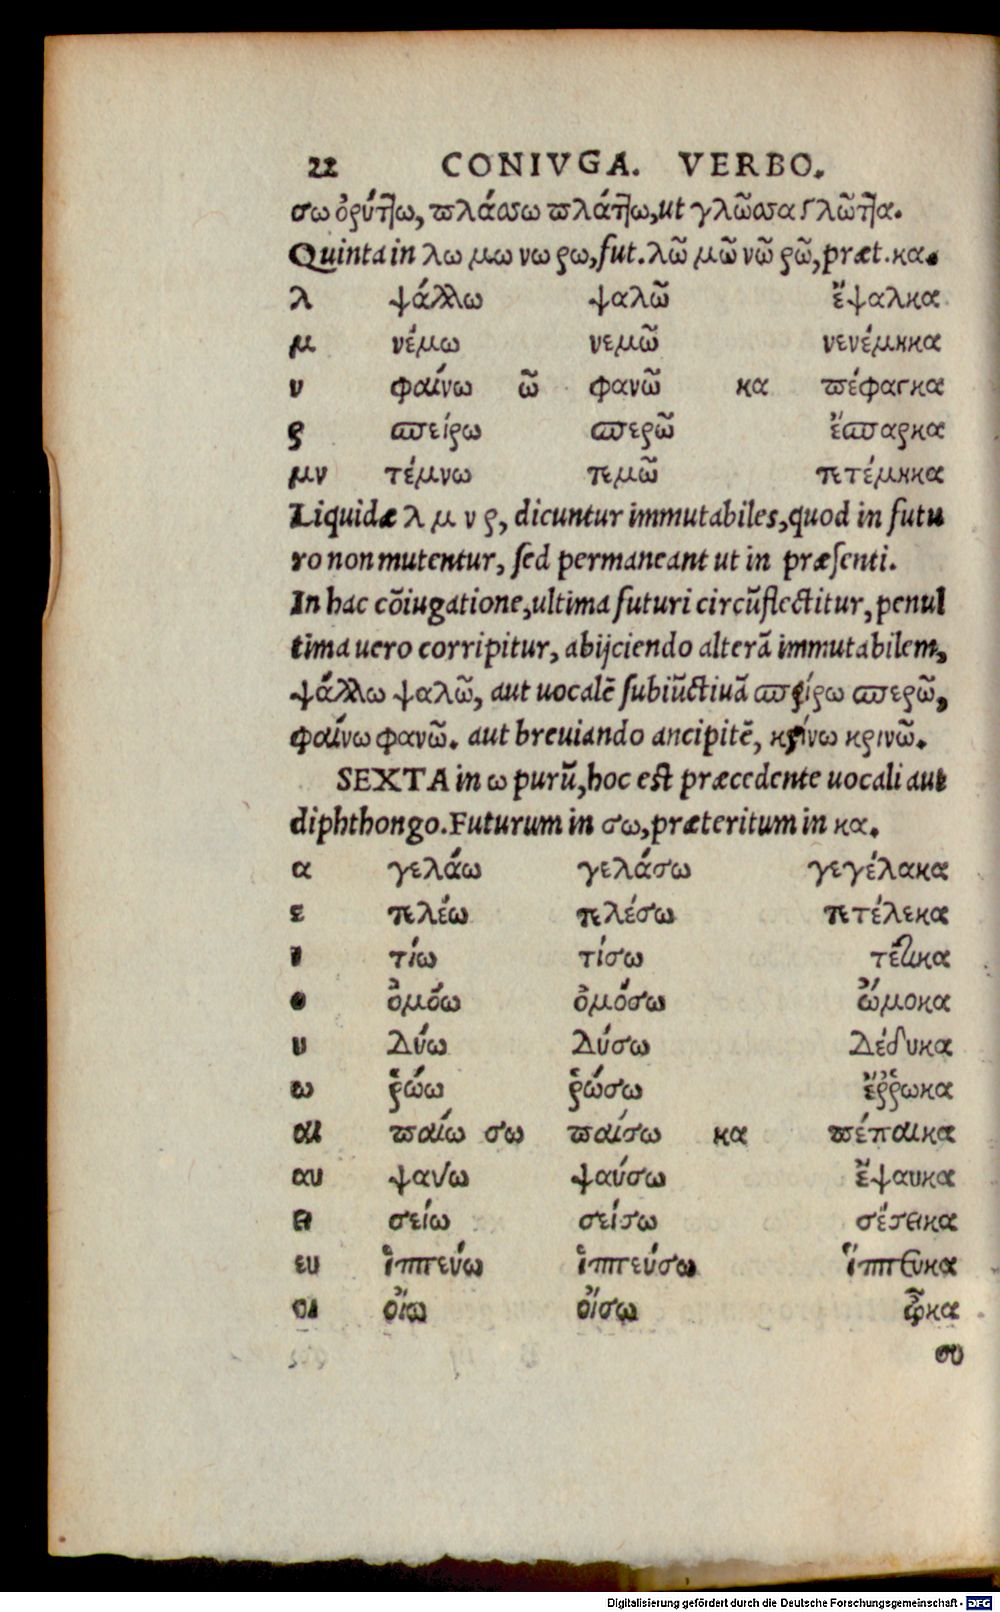 22 CONIVGA. VERBO.
σω ὀρύττω, πλάσσω πλάττω, ut γλῶσσα γλῶττα.
Quinta in λω μω νω ρω, fut. λῶ μῶ νῶ ρῶ, præt. κα.
λ ψάλλω ψαλῶ ἔψαλκα
μ νέμω νεμῶ νενέμηκα
ν φαίνω ῶ φανῶ κα πέφαγκα
ρ σπείρω σπερῶ ἔσπαρκα
μν τέμνω τεμῶ τετέμηκα
Liquidæ λ μ ν ρ, dicuntur immutabiles, quod in futu
ro non mutentur, sed permaneant ut in præsenti.
In hac cõiugatione, ultima futuri circũflectitur, penul
tima uero corripitur, abijciendo alterã immutabilem,
ψάλλω ψαλῶ, aut uocalẽ subiũctiuã σπείρω σπερῶ,
φαίνω φανῶ. aut breuiando ancipitẽ, κρίνω κρινῶ.
SEXTA in ω purũ, hoc est præcedente uocali aut
diphthongo. Futurum in σω, præteritum in κα.
α γελάω γελάσω γεγέλακα
ε τελέω τελέσω τετέλεκα
ι τίω τίσω τέτικα
ο ὀμόω ὀμόσω ὤμοκα
υ δύω δύσω δέδυκα
ω ῥώω ῥώσω ἔῤῥωκα
αι παίω σω παίσω κα πέπαικα
αυ ψαύω ψαύσω ἔψαυκα
ει σείω σείσω σέσεικα
ευ ἱππεύω ἱππεύσω ἵππευκα
οι οἴω οἴσω ᾦκα
ου